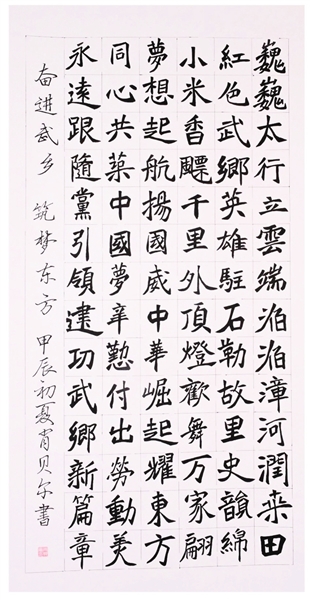 巍巍太行立雲端滔滔漳河潤桑田
紅色武鄉英雄駐石勒故里史韻綿
小米香飄千里外頂燈歡舞万家翩
夢想起航揚國威中華崛起耀東方
同心共築中國夢辛懃付出勞動美
永遠跟隨黨引領建功武鄉新篇章
奋进武乡 筑梦东方 甲辰初夏肖贝尔書